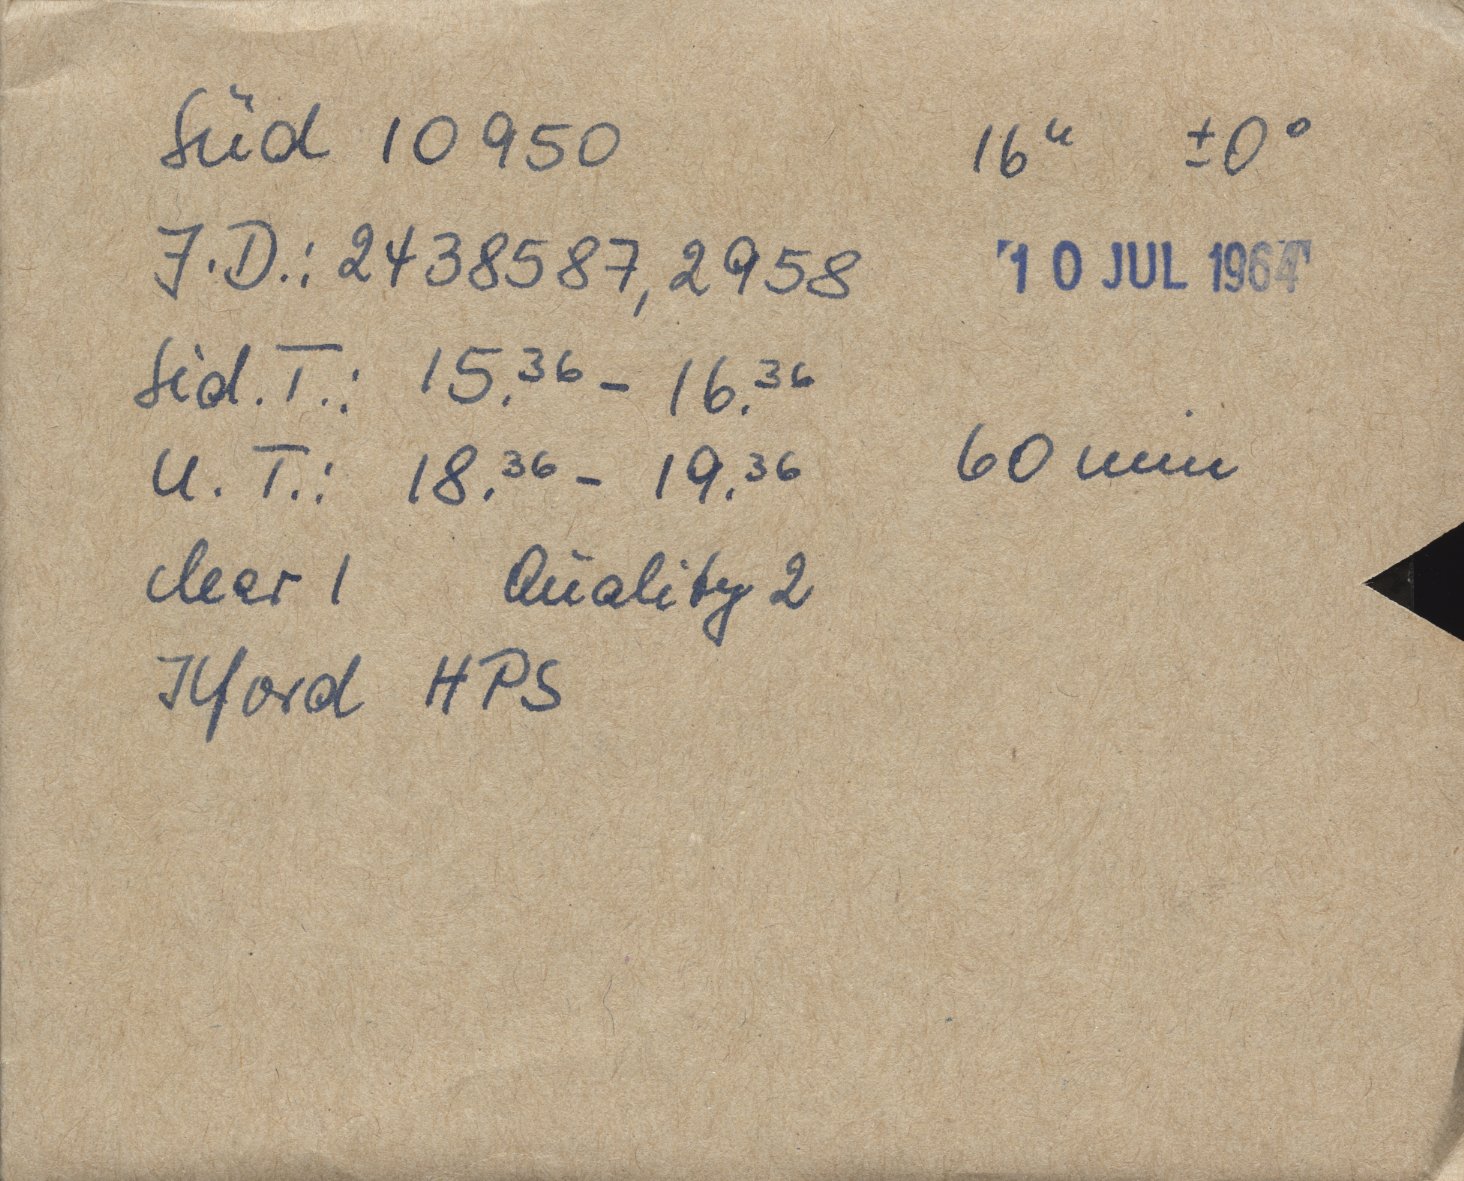 Süd 10950 16ʰ ±0°
J.D.: 2438587,2958 10 JUL 1964
Sid.T.: 15.³⁶ - 16.³⁶
U.T.: 18.³⁶ - 19.³⁶ 60 min
clear 1 Quality 2
Ilford HPS